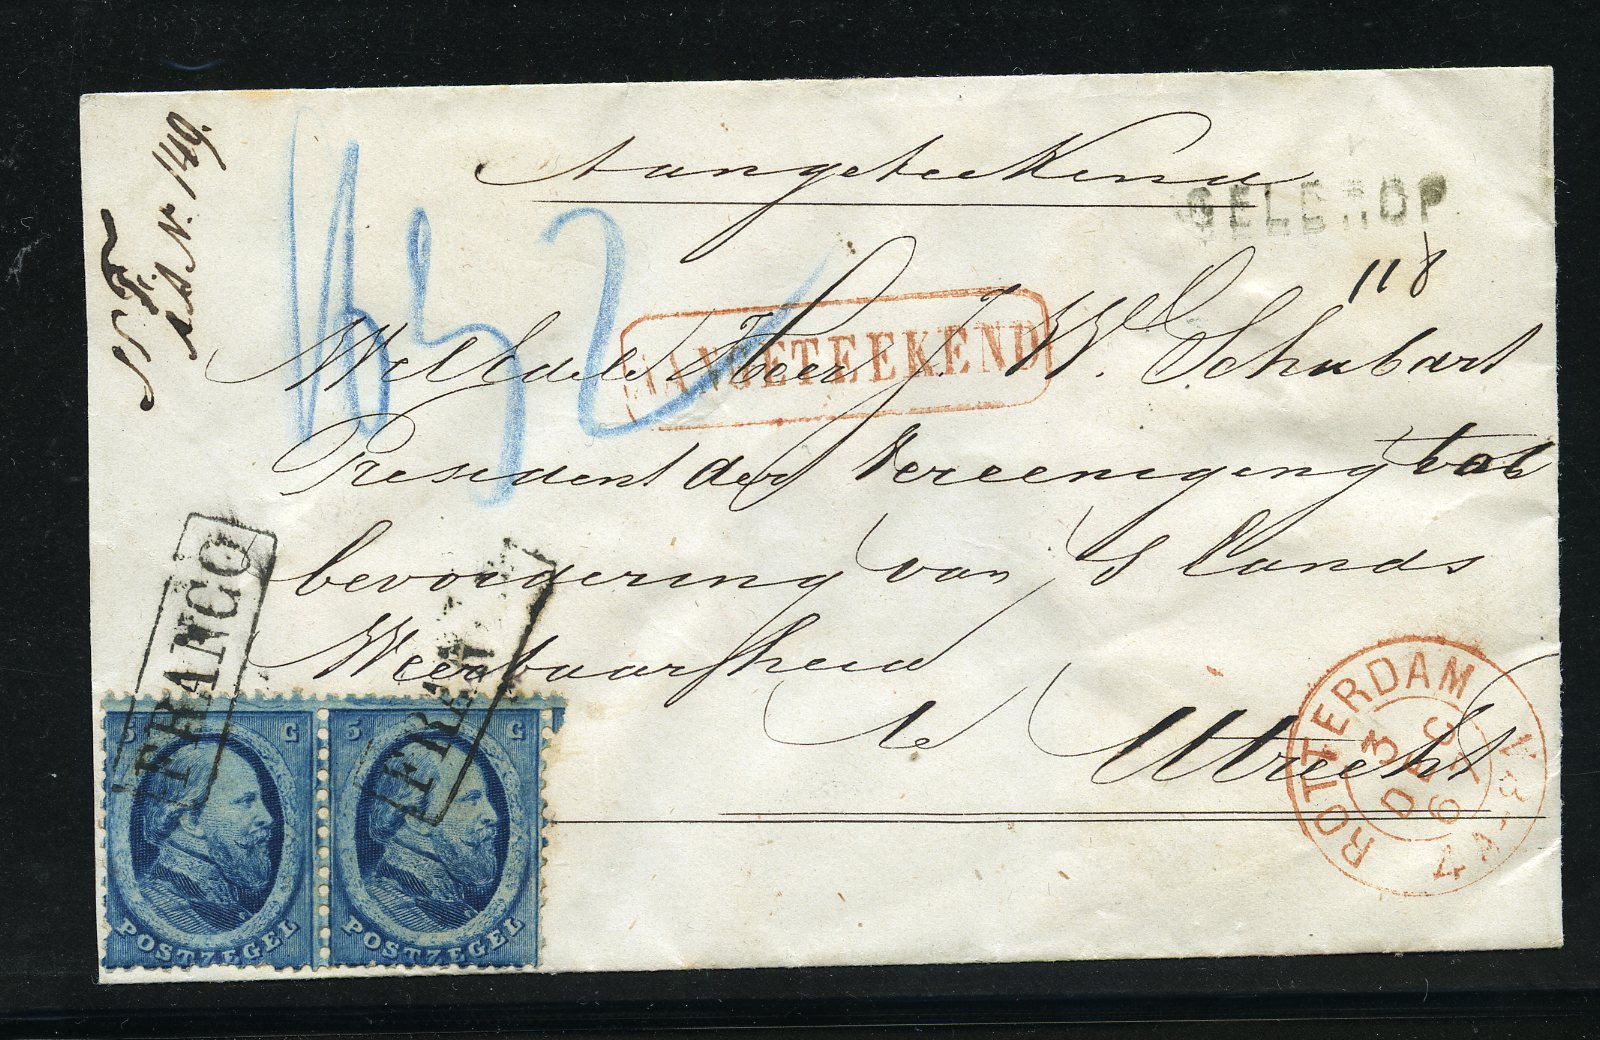 Aangeteekend
GELDROP
118
N. 149.
AANGETEEKEND
WelEdele Heer J. W. Schubart
President der Vereeniging tot
bevordering van 's Lands
Weerbaarheid
te Utrecht
FRANCO
FRANCO
ROTTERDAM
3 DEC 67
5 C
POSTZEGEL
5 C
POSTZEGEL